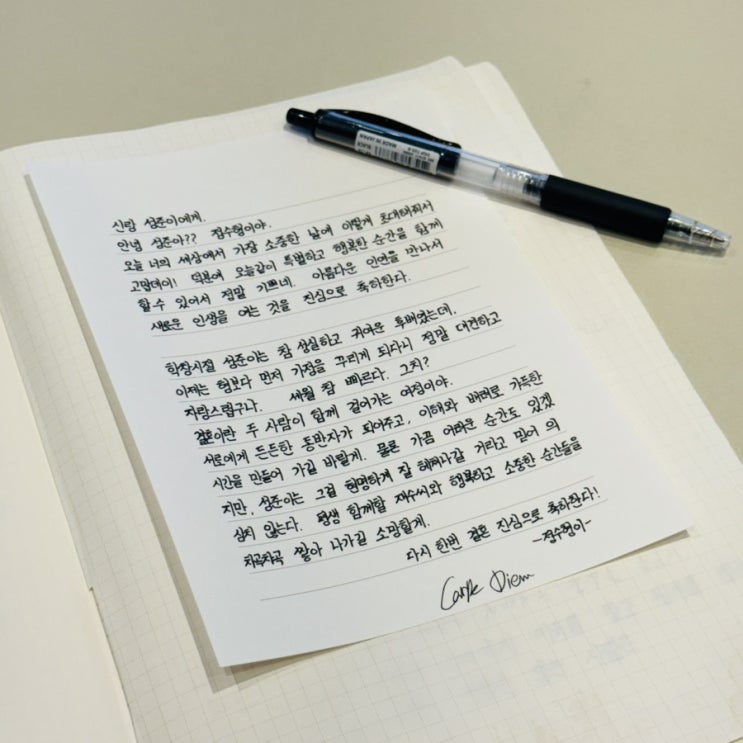 신랑 성준이에게.
안녕 성준아?? 정수형이야.
오늘 너의 세상에서 가장 소중한 날에 이렇게 초대해줘서
고맙데이! 덕분에 오늘같이 특별하고 행복한 순간을 함께
할 수 있어서 정말 기쁘네. 아름다운 인연을 만나서
새로운 인생을 여는 것을 진심으로 축하한다.
학창시절 성준이는 참 성실하고 귀여운 후배였는데,
이제는 형보다 먼저 가정을 꾸리게 되다니 정말 대견하고
자랑스럽구나. 세월 참 빠르다. 그치?
결혼이란 두 사람이 함께 걸어가는 여정이야.
서로에게 든든한 동반자가 되어주고, 이해와 배려로 가득한
시간을 만들어 가길 바랄게. 물론 가끔 어려운 순간도 있겠
지만, 성준이는 그걸 현명하게 잘 헤쳐나갈 거라고 믿어 의
심치 않는다. 평생 함께할 제수씨와 행복하고 소중한 순간들을
차곡차곡 쌓아 나가길 소망할게.
다시 한번 결혼 진심으로 축하한다!
-정수형이-
Carpe Diem
MADE IN JAPAN
BLACK